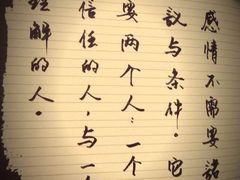 感情不需要諾
议与条件。它
要两个人：一个
信任的人，与一个
理解的人。